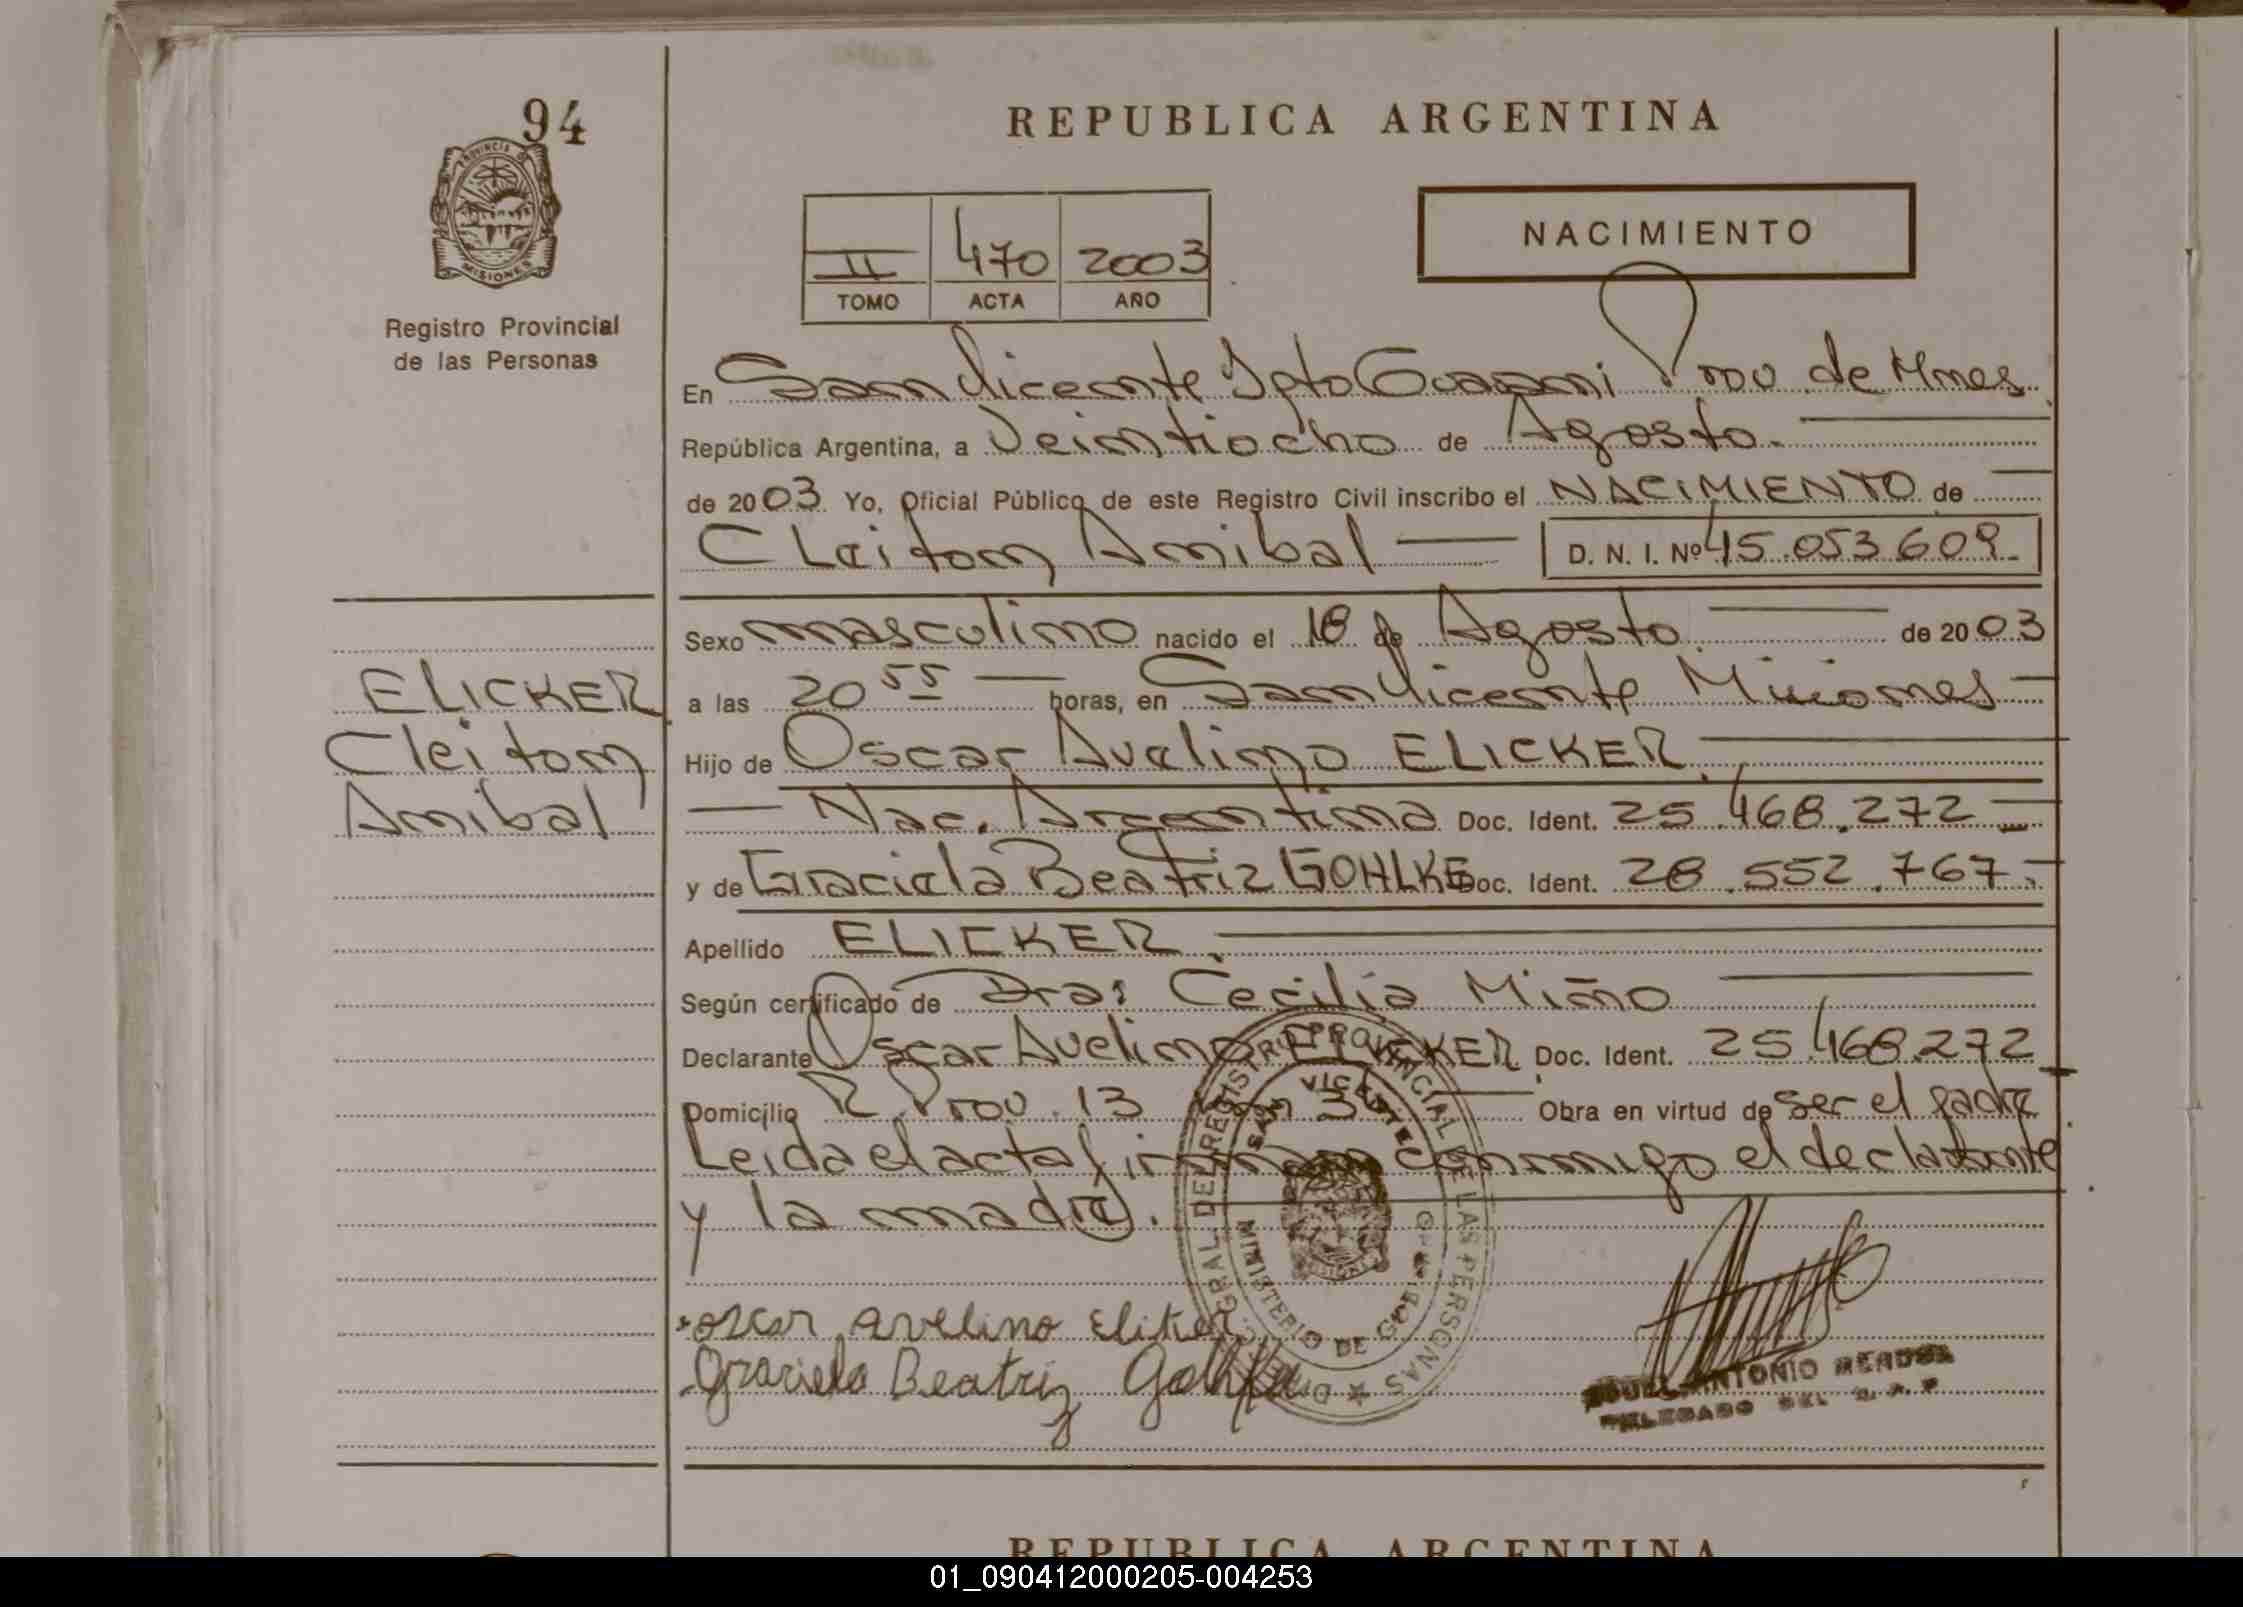 94
PROVINCIA DE
MISIONES
Registro Provincial
de las Personas
REPUBLICA ARGENTINA
II 470 2003
TOMO ACTA AÑO
NACIMIENTO
En San Vicente Dpto Guarani Prov de Mnes
República Argentina, a Veintiocho de Agosto.
de 2003 Yo, Oficial Público de este Registro Civil inscribo el NACIMIENTO de
Cleiton Anibal D. N. I. Nº 45.053.609
Sexo masculino nacido el 18 de Agosto de 2003
a las 20 55 horas, en San Vicente Misiones
Hijo de Oscar Avelino ELICKER
Nac. Argentina Doc. Ident. 25.468.272
y de Graciela Beatriz GOHLKE Doc. Ident. 28.552.767
Apellido ELICKER
Según certificado de Dra: Cecilia Miño
Declarante Oscar Avelino ELICKER Doc. Ident. 25.468.272
Domicilio R. Prov. 13 Obra en virtud de ser el padre
Leida el acta firman conmigo el declarante
y la madre.
ELICKER
Cleiton
Anibal
oscar avelino Eliker
Graciela Beatriz
DIREC. GRAL. DEL REGISTRO PROVINCIAL DE LAS PERSONAS
SAN VICENTE
MINISTERIO DE GOBIERNO
ANTONIO
DELEGADO DEL
REPUBLICA ARGENTINA
01_090412000205-004253